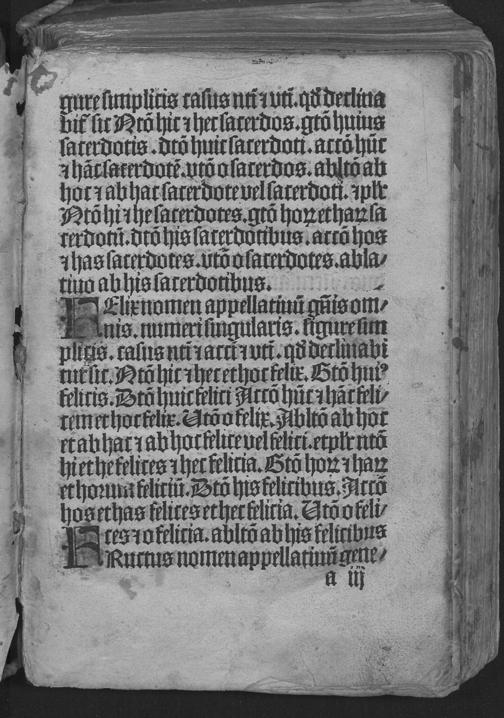 gure simplicis casus nt̄i ⁊ vt̄i. qd̄ declina
bit̄ sic Nt̄o hic ⁊ hec sacerdos. gt̄o huius
sacerdotis. dt̄o huic sacerdoti. accō hūc
⁊ hāc sacerdotē. vt̄o o sacerdos. ablt̄o ab
hoc ⁊ ab hac sacerdote vel sacerdoti. ⁊ plr̄
Nt̄o hi ⁊ he sacerdotes. gt̄o hoꝝ et haꝝ sa
cerdotū. dt̄o his sacerdotibus. accō hos
⁊ has sacerdotes. vt̄o o sacerdotes. abla/
tiuo ab his sacerdotibus.
FElix nomen appellatiuū gn̄is om/
nis. numeri singularis. figure sim
plicis. casus nt̄i ⁊ acc̄i ⁊ vt̄i. qd̄ declinabi
tur sic. Nt̄o hic ⁊ hec et hoc felix. Gt̄o huiꝰ
felicis. Dt̄o huic felici Accō hūc ⁊ hāc feli/
cem et hoc felix. Ut̄o o felix. Ablt̄o ab hoc
et ab hac ⁊ ab hoc felice vel felici. et plr̄ nt̄o
hi et he felices ⁊ hec felicia. Gt̄o hoꝝ ⁊ haꝝ
et horum feliciū. Dt̄o his felicibus. Accō
hos et has felices et hec felicia. Ut̄o o feli/
ces ⁊ o felicia. ablt̄o ab his felicibus
FRuctus nomen appellatiuū gene/
a iij